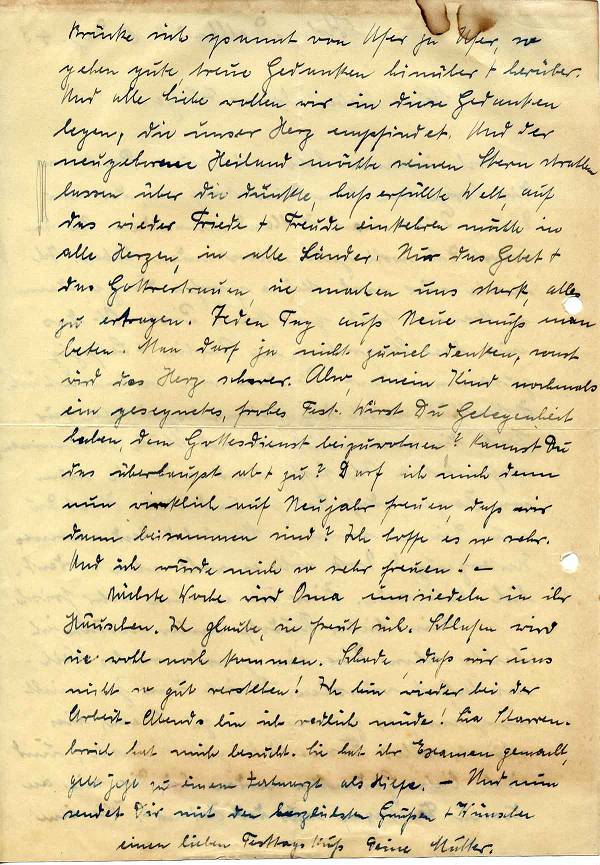 Brücke sich spannt von Ufer zu Ufer, so
gehen gute, treue Gedanken hinüber + herüber.
Und alle Liebe wollen wir in diese Gedanken
legen, die unser Herz empfindet. Und der
neugeborene Heiland möchte seinen Stern strahlen
lassen über die dunkle, haßerfüllte Welt, auf
das wieder Friede + Freude einkehren möchte in
alle Herzen, in alle Länder. Nur das Gebet +
das Gottvertrauen, sie machen uns stark, alles
zu ertragen. Jeden Tag aufs Neue muß man
beten. Man darf ja nicht zuviel denken, sonst
wird das Herz schwer. Also, mein Kind nochmals
ein gesegnetes, frohes Fest. Wirst Du Gelegenheit
haben, dem Gottesdienst beizuwohnen? Kannst Du
das überhaupt ab + zu? Darf ich mich denn
nun wirklich auf Neujahr freuen, daß wir
dann beisammen sind? Ich hoffe es so sehr.
Und ich würde mich so sehr freuen! –
Nächste Woche wird Oma umsiedeln in ihr
Häuschen. Ich glaube, sie freut sich. Schlafen wird
sie wohl noch kommen. Schade, daß wir uns
nicht so gut verstehen! Ich bin wieder bei der
Arbeit. Abends bin ich redlich müde!
hat mich besucht. Sie hat ihr Examen gemacht,
geht jetzt zu einem Zahnarzt als Hilfe. – Und nun
sendet Dir mit den herzlichsten Grüßen + Wünschen
einen lieben Festtagskuß Deine Mutter.